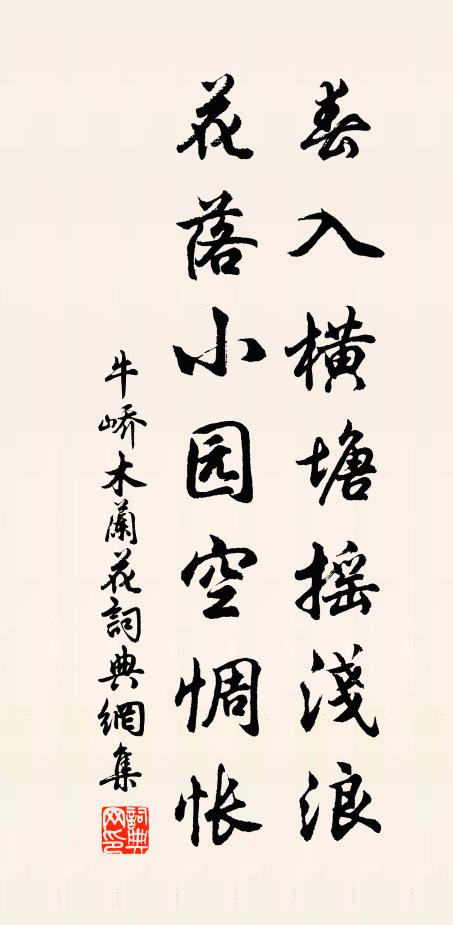 春入橫塘摇淺浪
花落小园空惆怅
牛峤木蘭花詞典網集
詞典网印